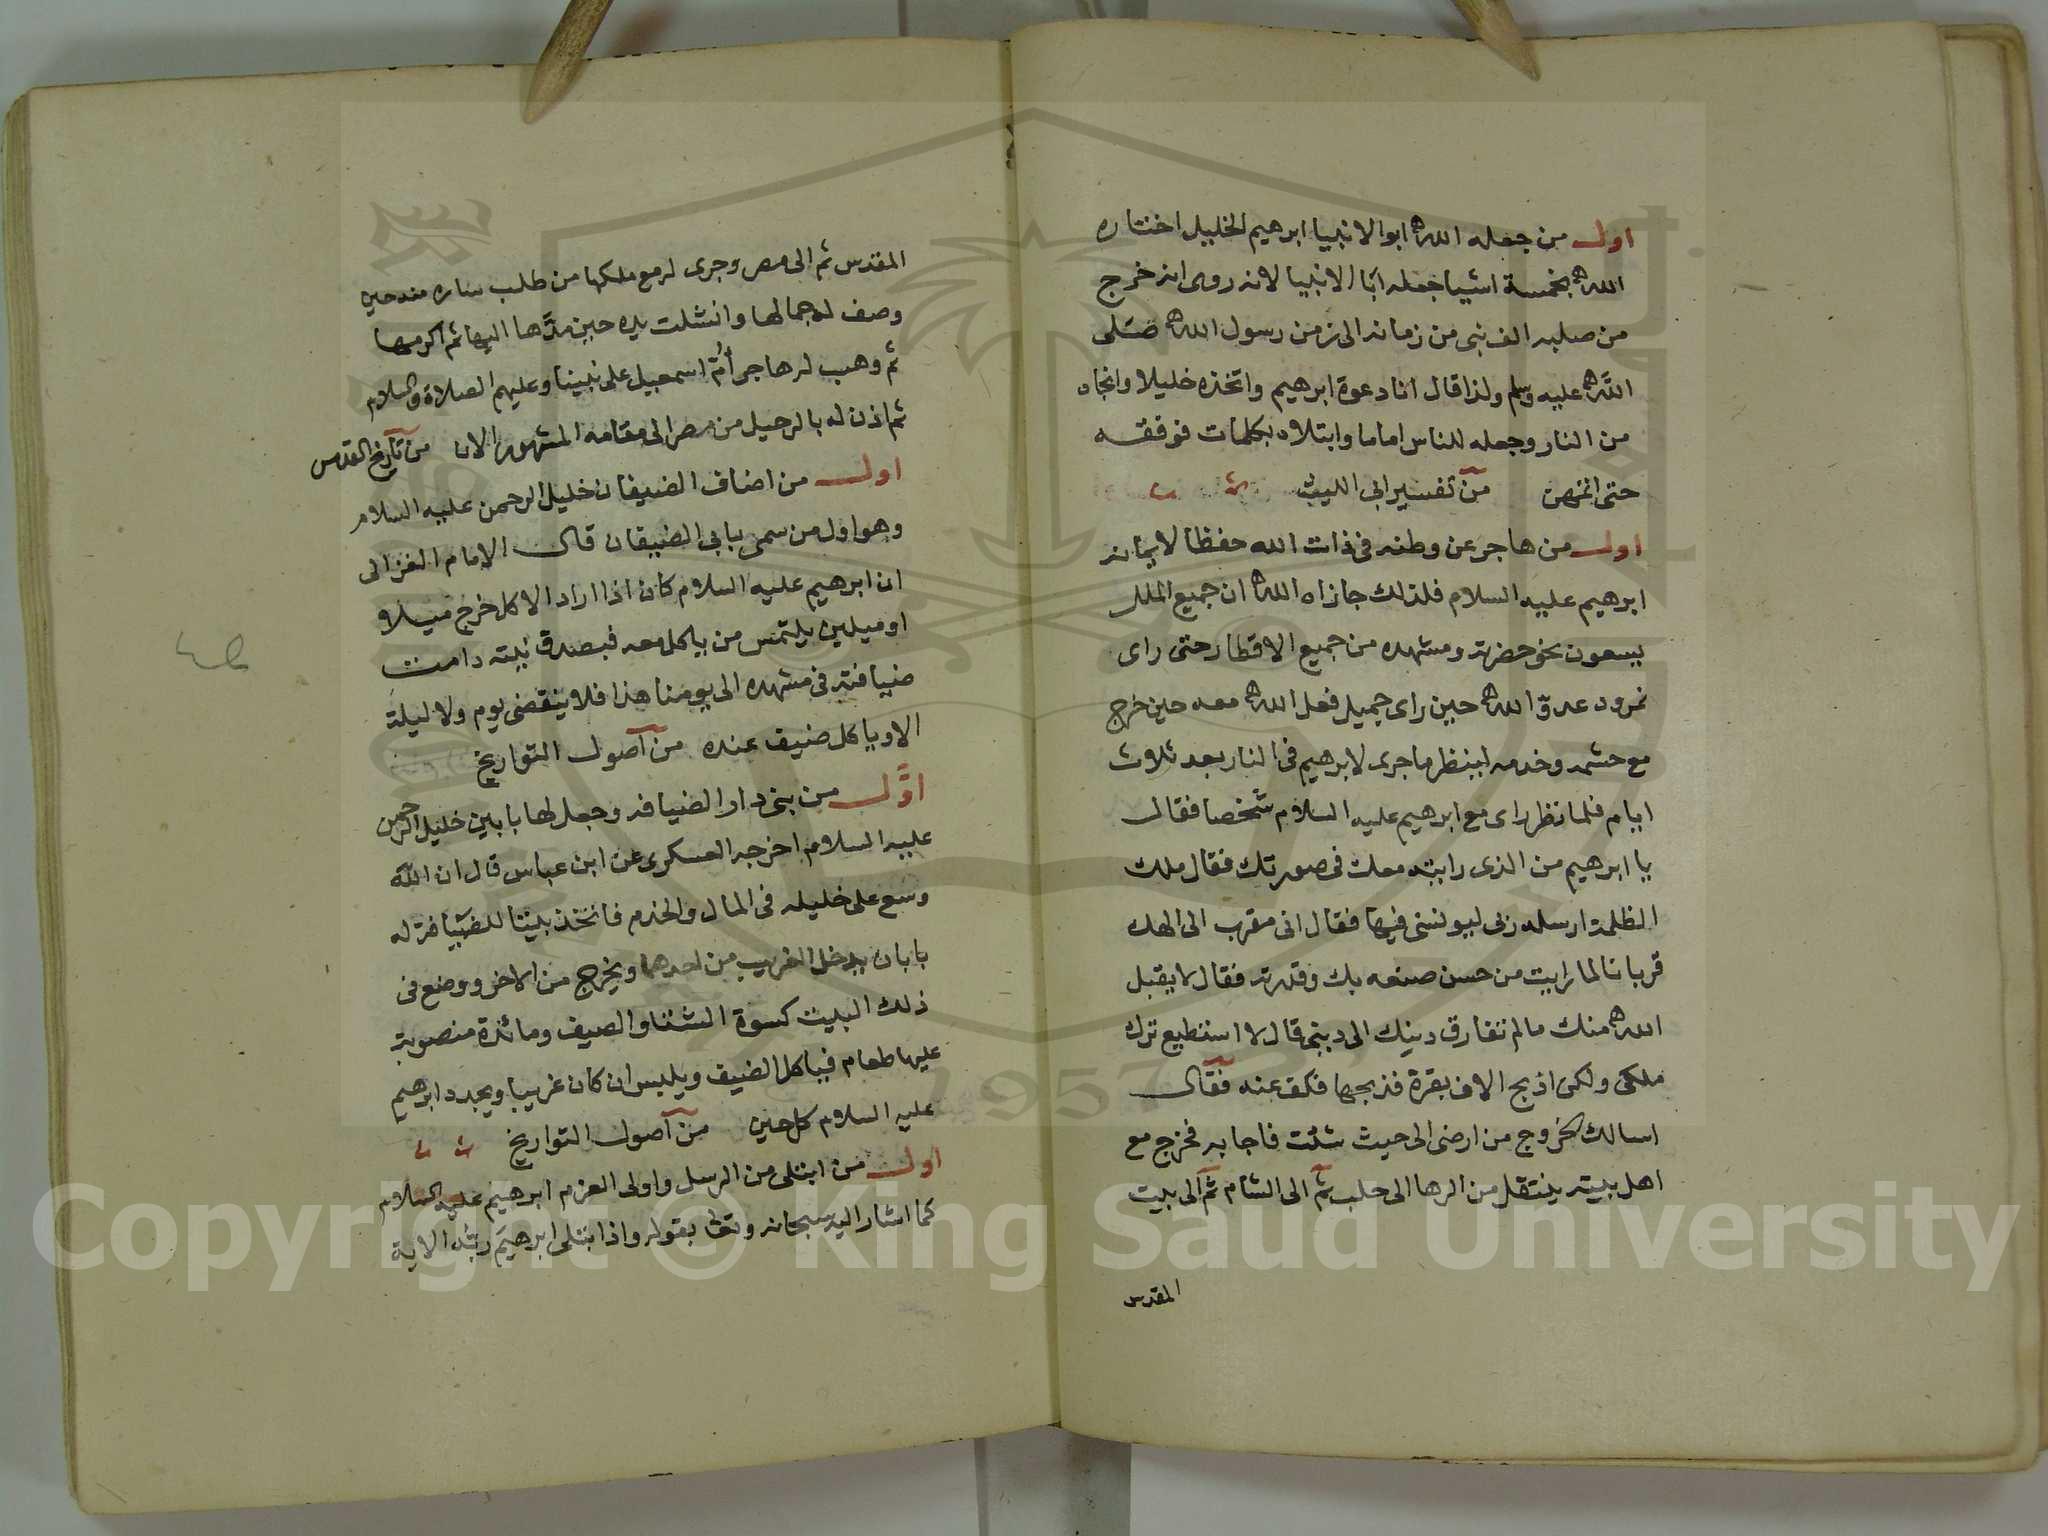 اول من جعله الله ابو الانبيا ابرهيم الخليل اختاره
الله بخمسة اشيا جعله ابا الانبيا لانه روى انه خرج
من صلبه الف نبى من زمانه الى زمن رسول الله صلى
الله عليه وسلم ولذا قال انا دعوة ابرهيم واتخذه خليلا وانجاه
من النار وجعله للناس اماما وابتلاه بكلمات فوفقه
حتى اتمهن من تفسير ابى الليث
اول من هاجر عن وطنه فى ذات الله حفظا لايمانه
ابرهيم عليه السلام فلذلك جازاه الله ان جميع الملل
يسعون نحو حضرته ومشهده من جميع الاقطار حتى راى
نمرود عدو الله حين راى جميل فعل الله معه حين خرج
مع حشمه وخدمه لينظر ما جرى لابرهيم فى النار بعد ثلاث
ايام فلما نظر راى مع ابرهيم عليه السلام شخصا فقال
يا ابرهيم من الذى رايته معك فى صورتك فقال ملك
الظلة ارسله ربى ليونسنى فيها فقال انى مقرب الى الهك
قربانا لما رايت من حسن صنعه بك وقدرته فقال لا يقبل
الله منك ما لم تفارق دينك الى دينى قال لا استطيع ترك
ملكى ولكن اذبح الاف بقرة فذبحها فكف عنه فقال
اسالك الخروج من ارضى الى حيث شئت فاجابه فخرج مع
اهل بيته ينتقل من الرها الى حلب ثم الى الشام ثم الى بيت
المقدس
المقدس ثم الى مصر وجرى له مع ملكها من طلب ساره منه حين
وصف له جمالها وانشلت يده حين مدها اليها ثم اكرمها
ثم وهب لها هاجر أم اسمعيل على نبينا وعليهم الصلاة والسلام
ثم اذن له بالرحيل من مصر الى مقامه المشهور الان من تاريخ القدس
اول من اضاف الضيفان خليل الرحمن عليه السلام
وهو اول من سمى بابى الضيفان قال الامام الغزالى
ان ابرهيم عليه السلام كان اذا اراد الاكل خرج ميلا
او ميلين يلتمس من ياكل معه فبصدق نيته دامت
ضيافته فى مشهده الى يومنا هذا فلا ينقضى يوم ولا ليلة
الا وياكل ضيف عنده من اصول التواريخ
اول من بنى دار الضيافه وجعل لها بابين خليل الرحمن
عليه السلام اخرجه العسكرى عن ابن عباس قال ان الله
وسع على خليله فى المال والخدم فاتخذ بيتا للضيافة له
بابان يدخل الغريب من احدهما ويخرج من الاخر ووضع فى
ذلك البيت كسوة الشتا والصيف ومائدة منصوبة
عليها طعام فياكل الضيف ويلبس ان كان غريبا ويجدد ابرهيم
عليه السلام كل حين من اصول التواريخ
اول من ابتلى من الرسل واولى العزم ابرهيم عليه السلام
كما اشار اليه سبحانه وتعالى بقوله واذا بتلى ابرهيم ربه الاية
Copyright © King Saud University
1957